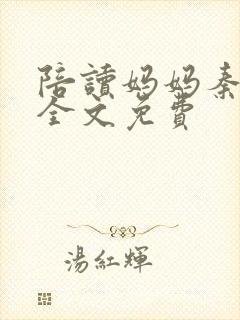 陪讀媽媽秦
全文免費
湯紅輝